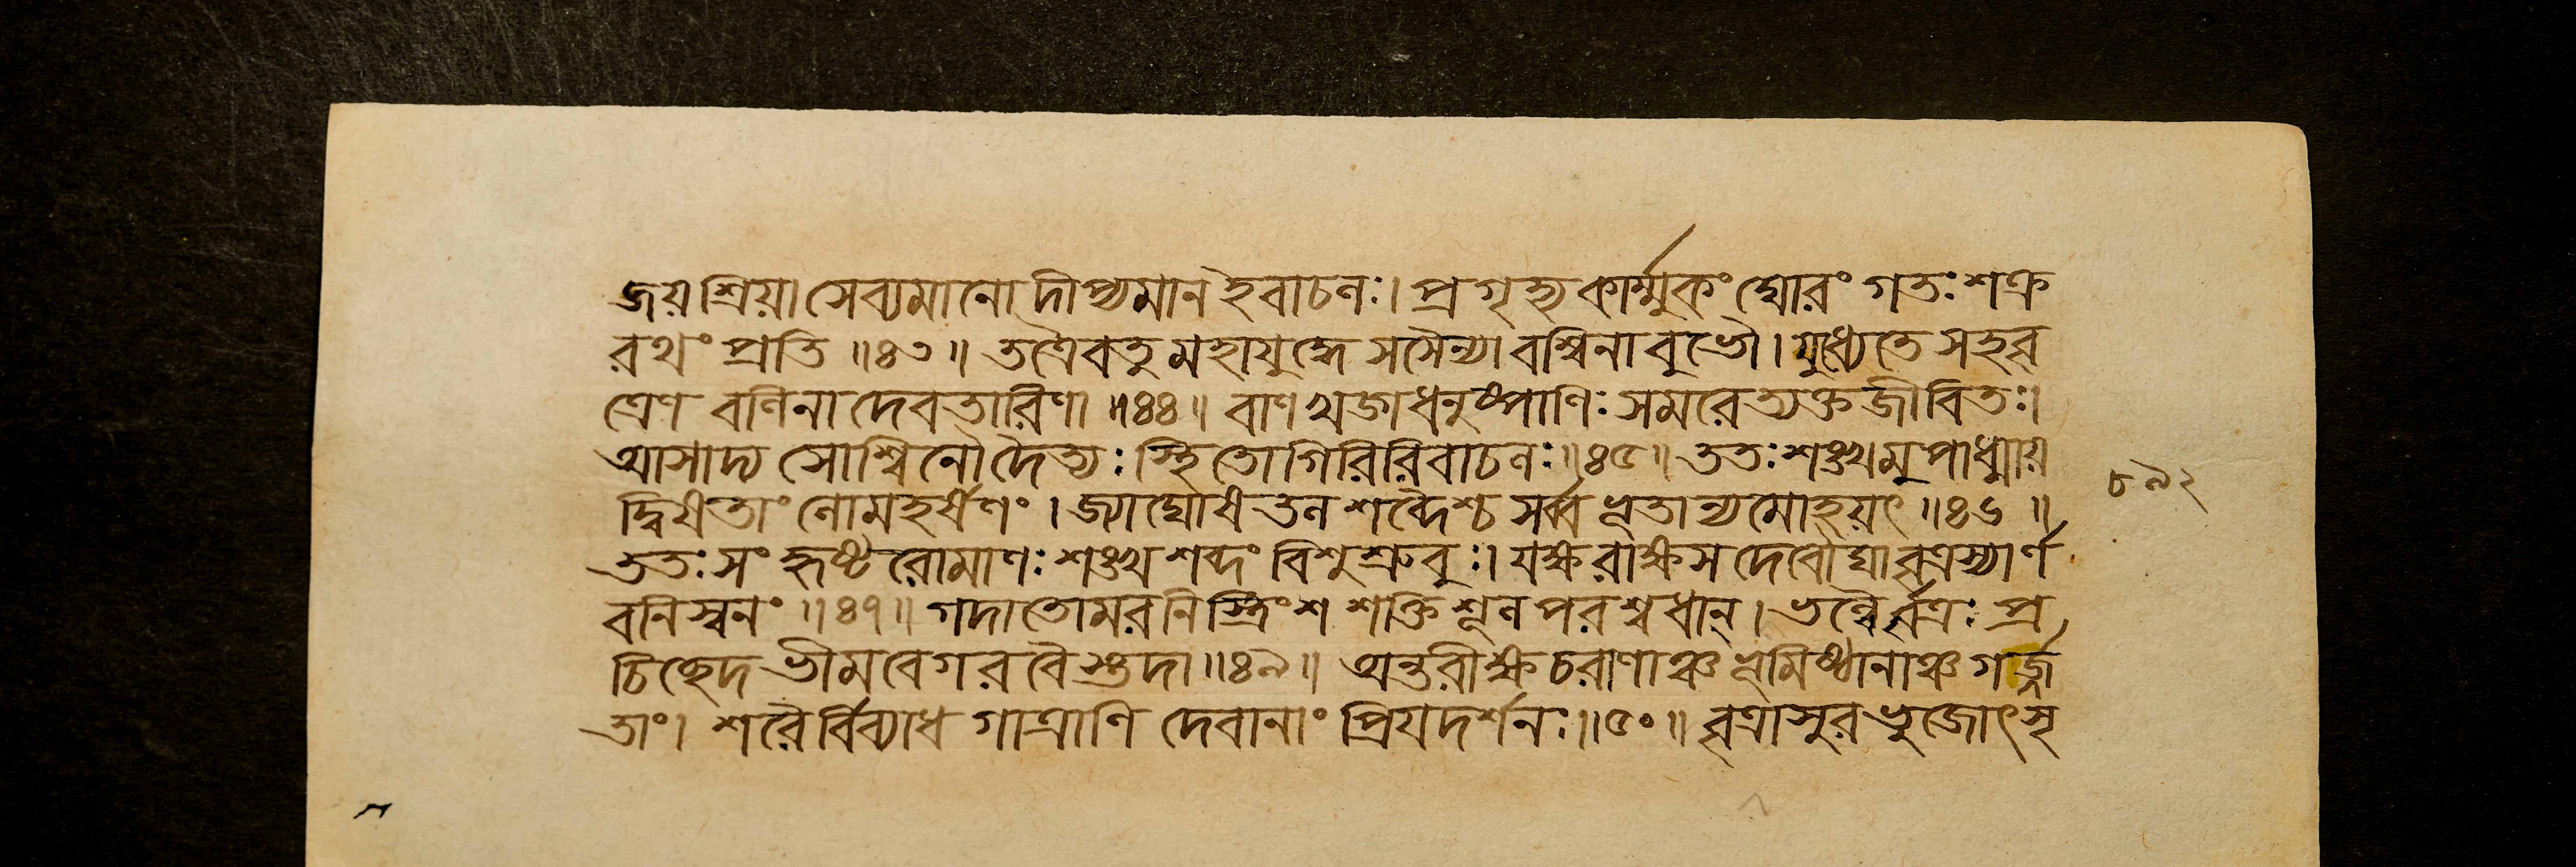 জয়শ্রিয়া সেব্যমানো দীপ্যমান ইবাচলঃ। প্রগৃহ্য কার্ম্মুকং ঘোরং গতঃ শক্র
রথং প্রতি ॥৪৩॥ তত্রৈব তু মহাযুদ্ধে সসৈন্যাবশ্বিনাবুভৌ। যুধ্যেতে সহ বৃ
ত্রেণ বলিনা দেবতারিণা ॥৪৪॥ বাণখড়্গধনুষ্পাণিঃ সমরে ত্যক্তজীবিতঃ।
আসাদ্য সোশ্বিনৌ দৈত্যঃ স্থিতো গিরিরিবাচলঃ ॥৪৫॥ ততঃ শঙ্খমুপাধ্মায়
দ্বিষতাং লোমহর্ষণং। জ্যাঘোষতল শব্দৈশ্চ সর্ব্বভূতান্যমোহয়ৎ ॥৪৬॥
ততঃ সংহৃষ্টরোমাণঃ শঙ্খশব্দং বিশুশ্রুবুঃ। যক্ষরাক্ষসদেবৌঘা বৃত্রস্যার্ণ
বনিস্বনং ॥৪৭॥ গদাতোমরনিস্ত্রিংশশক্তিশূলপরশ্বধান্। ভল্লৈর্বৃত্রঃ প্র
চিচ্ছেদ ভীমবেগরবৈস্তদা ॥৪৯॥ অন্তরীক্ষচরাণাঞ্চ ভূমিষ্ঠানাঞ্চ গর্জ্জ
তাং। শরৈর্বিব্যাধ গাত্রাণি দেবানাং প্রিয়দর্শনঃ ॥৫০॥ বৃত্রাসুরভুজোৎসৃ
৮৯২